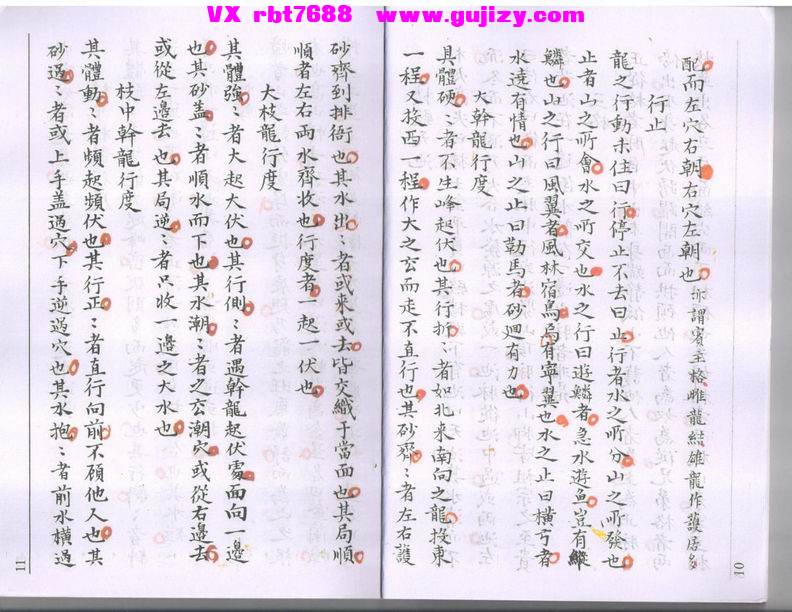 VX rbt7688 www.gujizy.com
配而左穴右朝右穴左朝也亦謂賓主格雌龍結雄龍作護居多
行止
龍之行動未住曰行停止不去曰止行者水之所分山之所發也
止者山之所會水之所交也水之行曰遊鱗者急水遊魚豈有縱
鱗也山之行曰風翼者風林宿鳥烏有寧翼也水之止曰橫弓者
水遶有情也山之止曰勒馬者砂廻有力也
大幹龍行度
具體硬〻者不生峰起伏也其行折〻者如北來南向之龍投東
一程又投西一程作大之玄而走不直行也其砂齊〻者左右護
10
砂齊到排衙也其水出〻者或来或去皆交織于當面也其局順〻
順者左右兩水齊收也行度者一起一伏也
大枝龍行度
其體強〻者大起大伏也其行側〻者遇幹龍起伏處面向一邊
也其砂盖〻者順水而下也其水潮〻者之玄潮穴或從右邊去
或從左邊去也其局逆〻者只收一邊之大水也
枝中幹龍行度
其體動〻者頻起頻伏也其行正〻者直行向前不顧他人也其
砂過〻者或上手盖過穴下手逆過穴也其水抱〻者前水橫過
11